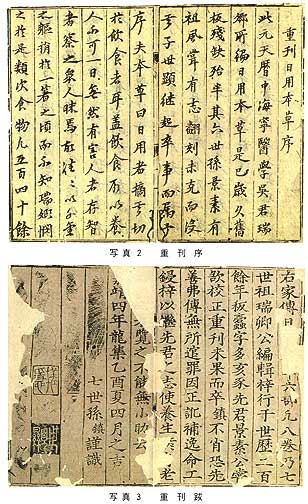 重刊日用本草序
此元天曆中海寧醫學吳君瑞
卿所編日用本草是已歲久舊
板殘缺殆半其六世孫景素有
祖風嘗有志翻刻未克而沒
子世顯繼起卒事而屬予
序夫本草曰日用者摘其切
於飲食者耳盖飲食所以養
人不可一日無然有害人者存智
者察之衆人昧焉故往々以千金
之軀捐於一箸之頃而不知瑞卿惘
之於是類次食物凡五百四十餘
写真2 重刊序
右家傳日 六部凡八卷乃七
世祖瑞卿公編輯梓行于世歷二百
餘年板蠹字多亥豕先君景素公嘗
欲校正重刊未果而卒鎮不肖恐先
善弗傳無所逭罪因正訛補逸
鋟梓以 先君之志使養生 老
覽之不能無小助云
靖四年龍集乙酉夏四月之吉
七世孫鎮謹識
写真3 重刊跋